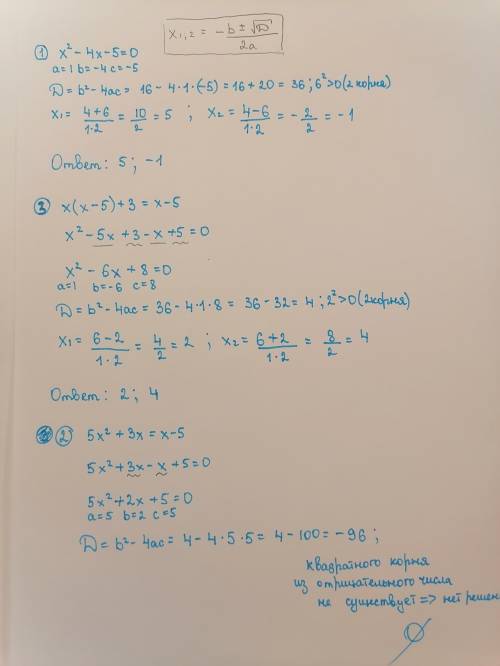 x₁,₂ = (-b ± √D)/2a
① x² - 4x - 5 = 0
a=1 b=-4 c=-5
D = b² - 4ac = 16 - 4·1·(-5) = 16 + 20 = 36 ; 6² > 0 (2 корня)
x₁ = (4+6)/(1·2) = 10/2 = 5 ; x₂ = (4-6)/(1·2) = -2/2 = -1
Ответ: 5 ; -1
③ x(x-5)+3 = x-5
x² - 5x + 3 - x + 5 = 0
x² - 6x + 8 = 0
a=1 b=-6 c=8
D = b² - 4ac = 36 - 4·1·8 = 36 - 32 = 4 ; 2² > 0 (2 корня)
x₁ = (6-2)/(1·2) = 4/2 = 2 ; x₂ = (6+2)/(1·2) = 8/2 = 4
Ответ: 2 ; 4
② 5x² + 3x = x - 5
5x² + 3x - x + 5 = 0
5x² + 2x + 5 = 0
a=5 b=2 c=5
D = b² - 4ac = 4 - 4·5·5 = 4 - 100 = -96 ;
квадратного корня
из отрицательного числа
не существует => нет решен
∅